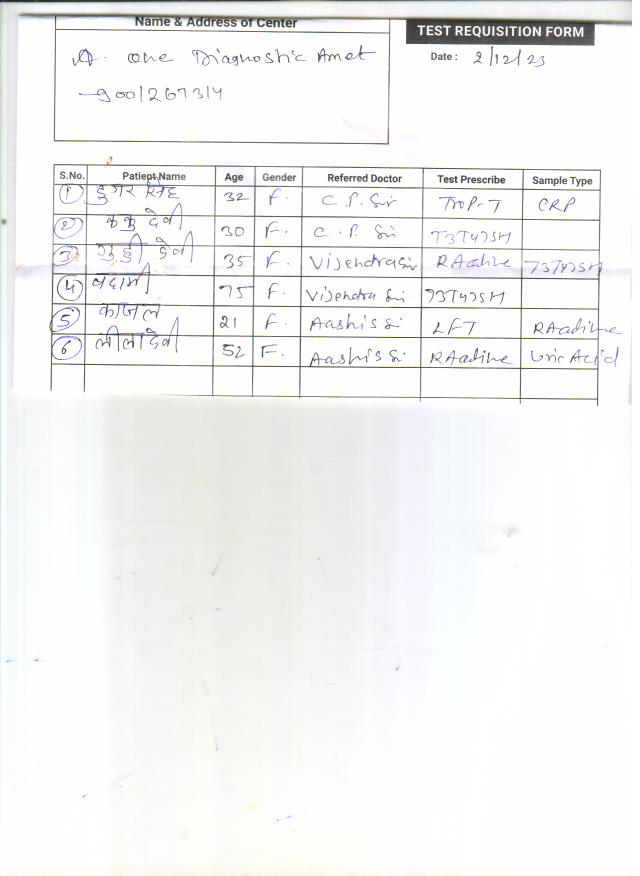 Name & Address of Center
TEST REQUISITION FORM
A. one Diagnostic Amet
9001267314
Date : 2/12/23
S.No. Patient Name Age Gender Referred Doctor Test Prescribe Sample Type
1 डुगर सिह 32 F. C.P. Sir TroP-T CRP
2 देवी 30 F. C.P. Sir T3T4TSH
3 देवी 35 F. Vijendra Sir RA T3T4TSH
4 बदामी 75 F. Vijendra Sir T3T4TSH
5 काजल 21 F. Aashis Sir LFT RA
6 लीला देवी 52 F. Aashis Sir RA Uric Acid